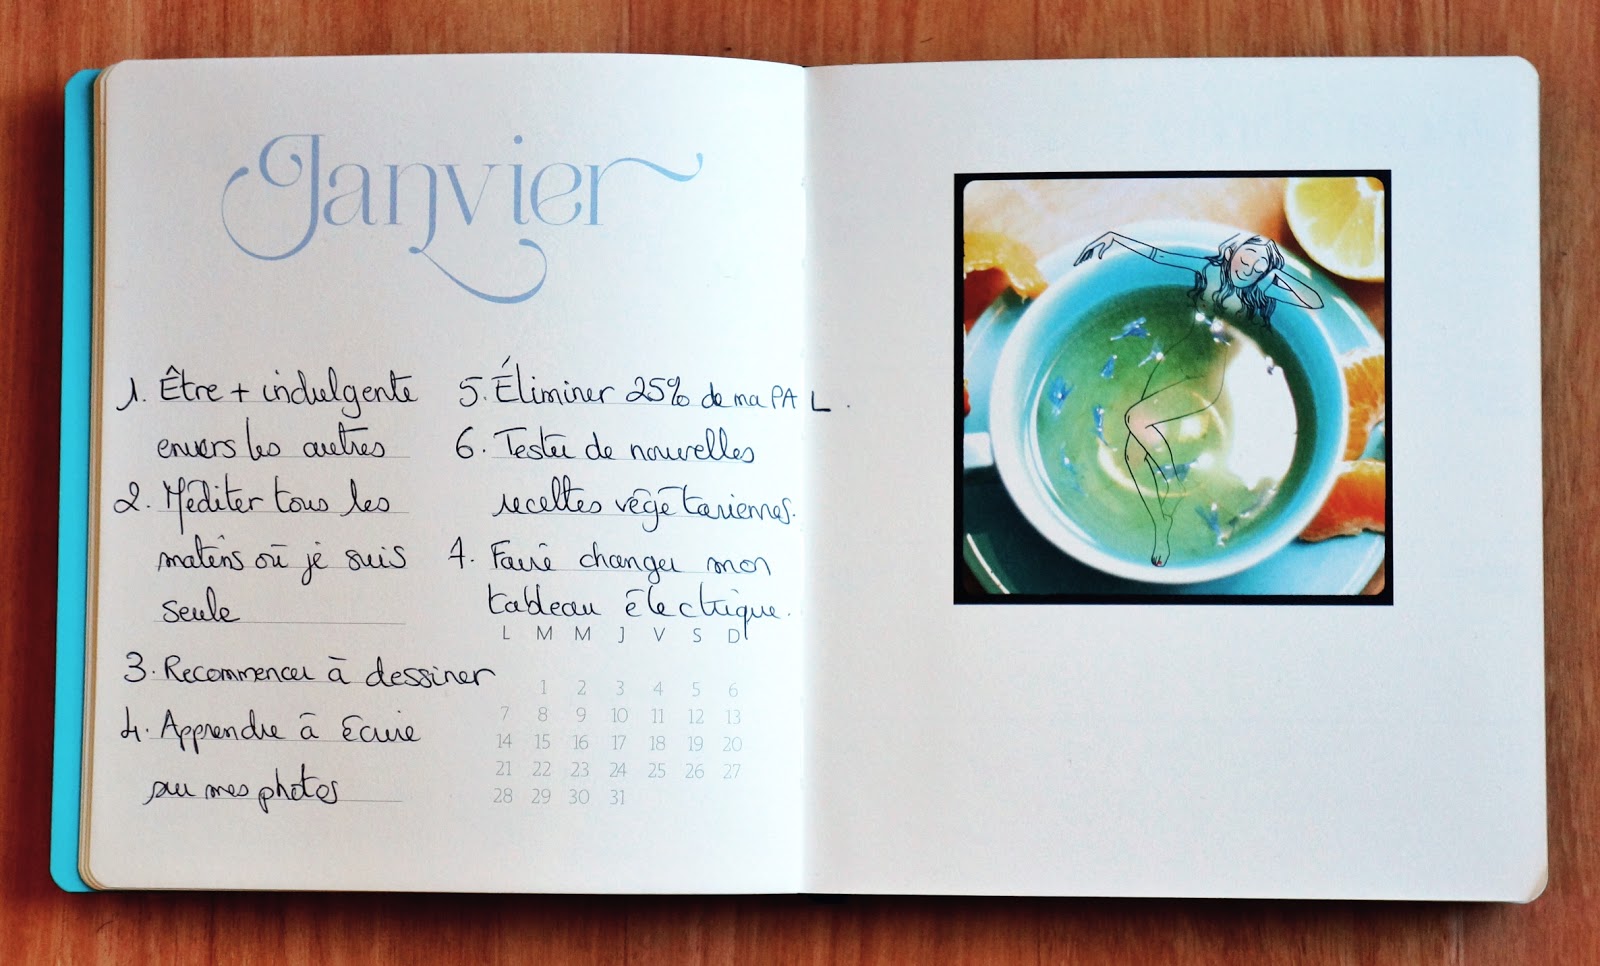 Janvier
1. Être + indulgente
envers les autres
2. Méditer tous les
matins où je suis
seule
3. Recommencer à dessiner
4. Apprendre à écrire
sur mes photos
5. Éliminer 25% de ma PAL.
6. Tester de nouvelles
recettes végétariennes.
7. Faire changer mon
tableau électrique.
L M M J V S D
1 2 3 4 5 6
7 8 9 10 11 12 13
14 15 16 17 18 19 20
21 22 23 24 25 26 27
28 29 30 31